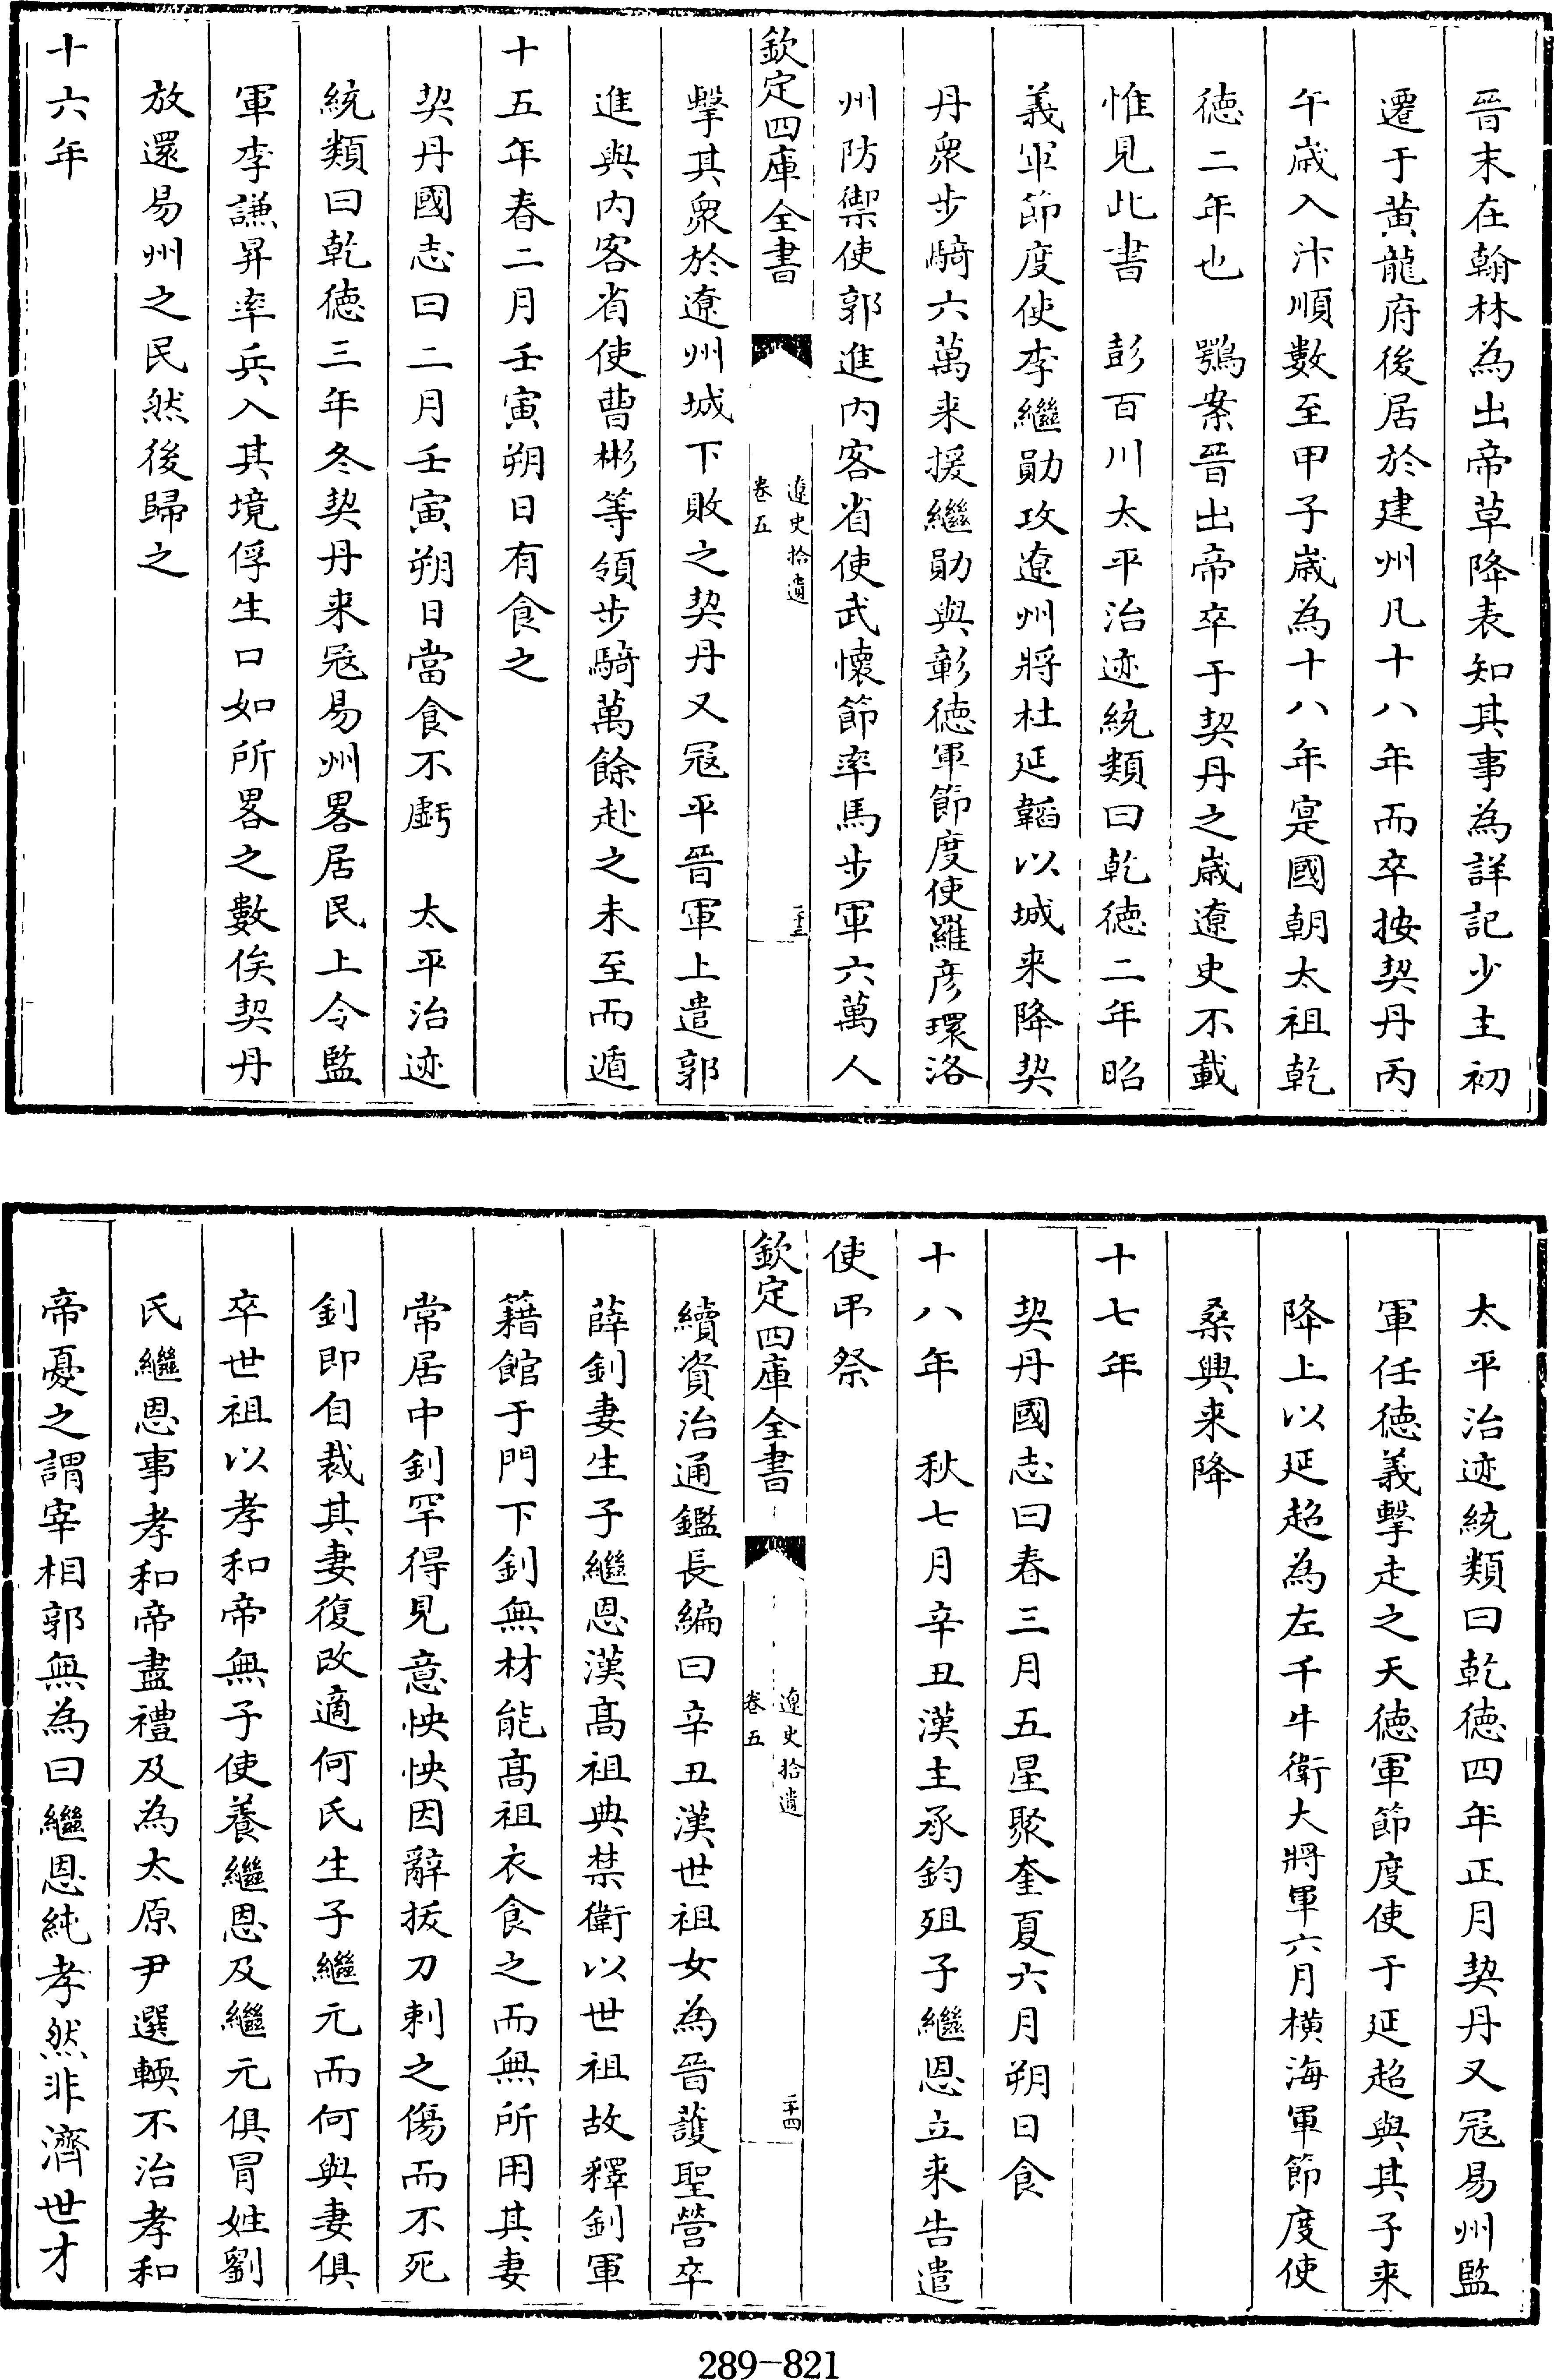 晉末在翰林為出帝草降表知其事為詳記少主初
遷于黃龍府後居於建州凡十八年而卒按契丹丙
午歲入汴順數至甲子歲為十八年寔國朝太祖乾
德二年也　鶚案晉出帝卒于契丹之歲遼史不載
惟見此書　彭百川太平治迹統類曰乾德二年昭
義軍節度使李繼勛攻遼州將杜延韜以城来降契
丹衆步騎六萬来援繼勛與彰德軍節度使羅彦環洛
州防禦使郭進內客省使武懷節率馬步軍六萬人
欽定四庫全書
遼史拾遺
卷五
二十三
擊其衆於遼州城下敗之契丹又冦平晉軍上遣郭
進與内客省使曹彬等領步騎萬餘赴之未至而遁
十五年春二月壬寅朔日有食之
契丹國志曰二月壬寅朔日當食不虧　太平治迹
統類曰乾德三年冬契丹来冦易州畧居民上令監
軍李謙昇率兵入其境俘生口如所畧之數俟契丹
放還易州之民然後歸之
十六年
太平治迹統類曰乾德四年正月契丹又冦易州監
軍任德義擊走之天德軍節度使于延超與其子来
降上以延超為左千牛衛大將軍六月横海軍節度使
桑興来降
十七年
契丹國志曰春三月五星聚奎夏六月朔日食
十八年　秋七月辛丑漢主承鈞殂子繼恩立来告遣
使弔祭
欽定四庫全書
遼史拾遺
卷五
二十四
續資治通鑑長編曰辛丑漢世祖女為晉護聖營卒
薛釗妻生子繼恩漢髙祖典禁衛以世祖故釋釗軍
籍館于門下釗無材能髙祖衣食之而無所用其妻
常居中釗罕得見意怏怏因辭拔刀刺之傷而不死
釗即自裁其妻復改適何氏生子繼元而何與妻俱
卒世祖以孝和帝無子使養繼恩及繼元俱冒姓劉
氏繼恩事孝和帝盡禮及為太原尹選輭不治孝和
帝憂之謂宰相郭無為曰繼恩純孝然非濟世才
289-821